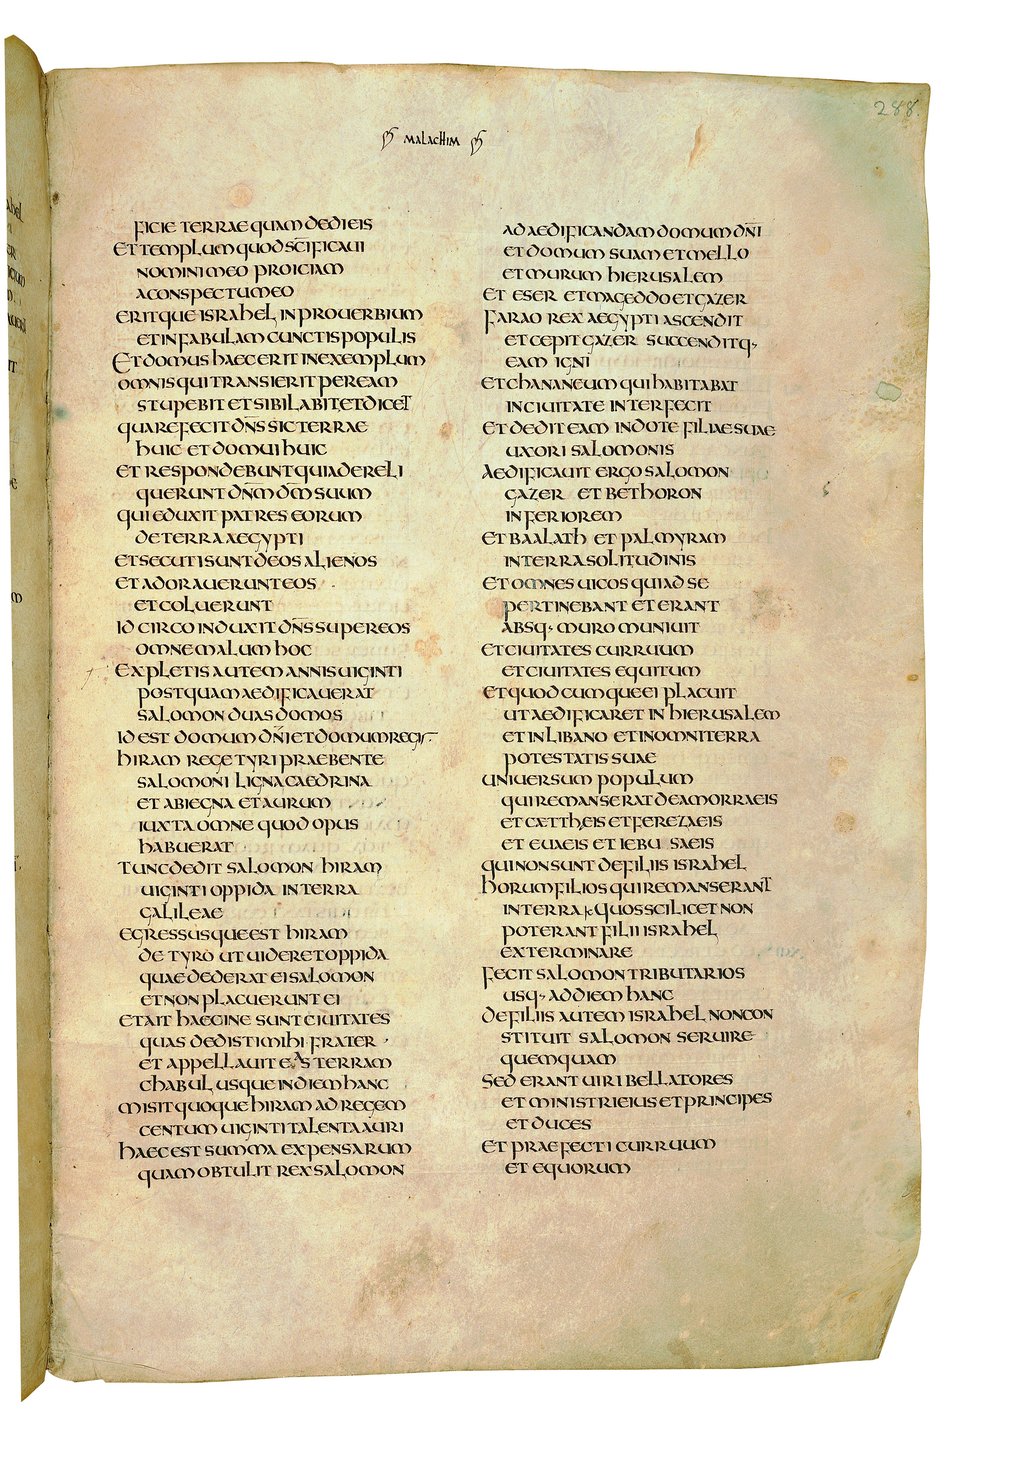 288.
MALACHIM
FICIE TERRAE QUAM DEDI EIS
ET TEMPLUM QUOD SC̄IFICAUI
NOMINI MEO PROICIAM
A CONSPECTU MEO
ERITQUE ISRAHEL IN PROUERBIUM
ET IN FABULAM CUNCTIS POPULIS
ET DOMUS HAEC ERIT IN EXEMPLUM
OMNIS QUI TRANSIERIT PER EAM
STUPEBIT ET SIBILABIT ET DICET
QUARE FECIT DN̄S SIC TERRAE
HUIC ET DOMUI HUIC
ET RESPONDEBUNT QUIA DERELI
QUERUNT DN̄M DM̄ SUUM
QUI EDUXIT PATRES EORUM
DE TERRA AEGYPTI
ET SECUTI SUNT DEOS ALIENOS
ET ADORAUERUNT EOS
ET COLUERUNT
IDCIRCO INDUXIT DN̄S SUPER EOS
OMNE MALUM HOC
EXPLETIS AUTEM ANNIS UIGINTI
POSTQUAM AEDIFICAUERAT
SALOMON DUAS DOMOS
ID EST DOMUM DN̄I ET DOMUM REGIS
HIRAM REGE TYRI PRAEBENTE
SALOMONI LIGNA CAEDRINA
ET ABIEGNA ET AURUM
IUXTA OMNE QUOD OPUS
HABUERAT
TUNC DEDIT SALOMON HIRAM
UIGINTI OPPIDA IN TERRA
GALILEAE
EGRESSUSQUE EST HIRAM
DE TYRO UT UIDERET OPPIDA
QUAE DEDERAT EI SALOMON
ET NON PLACUERUNT EI
ET AIT HAECINE SUNT CIUITATES
QUAS DEDISTI MIHI FRATER
ET APPELLAUIT EAS TERRAM
CHABUL USQUE IN DIEM HANC
MISIT QUOQUE HIRAM AD REGEM
CENTUM UIGINTI TALENTA AURI
HAEC EST SUMMA EXPENSARUM
QUAM OBTULIT REX SALOMON
AD AEDIFICANDAM DOMUM DN̄I
ET DOMUM SUAM ET MELLO
ET MURUM HIERUSALEM
ET ESER ET MAGEDDO ET GAZER
FARAO REX AEGYPTI ASCENDIT
ET CEPIT GAZER SUCCENDITQ·
EAM IGNI
ET CHANANEUM QUI HABITABAT
IN CIUITATE INTERFECIT
ET DEDIT EAM IN DOTE FILIAE SUAE
UXORI SALOMONIS
AEDIFICAUIT ERGO SALOMON
GAZER ET BETHORON
INFERIOREM
ET BAALATH ET PALMYRAM
IN TERRA SOLITUDINIS
ET OMNES UICOS QUI AD SE
PERTINEBANT ET ERANT
ABSQ· MURO MUNIUIT
ET CIUITATES CURRUUM
ET CIUITATES EQUITUM
ET QUODCUMQUE EI PLACUIT
UT AEDIFICARET IN HIERUSALEM
ET IN LIBANO ET IN OMNI TERRA
POTESTATIS SUAE
UNIUERSUM POPULUM
QUI REMANSERAT DE AMORRAEIS
ET CETTHEIS ET FEREZAEIS
ET EUAEIS ET IEBUSAEIS
QUI NON SUNT DE FILIIS ISRAHEL
HORUM FILIOS QUI REMANSERANT
IN TERRA QUOS SCILICET NON
POTERANT FILII ISRAHEL
EXTERMINARE
FECIT SALOMON TRIBUTARIOS
USQ· AD DIEM HANC
DE FILIIS AUTEM ISRAHEL NON CON
STITUIT SALOMON SERUIRE
QUEMQUAM
SED ERANT UIRI BELLATORES
ET MINISTRI EIUS ET PRINCIPES
ET DUCES
ET PRAEFECTI CURRUUM
ET EQUORUM